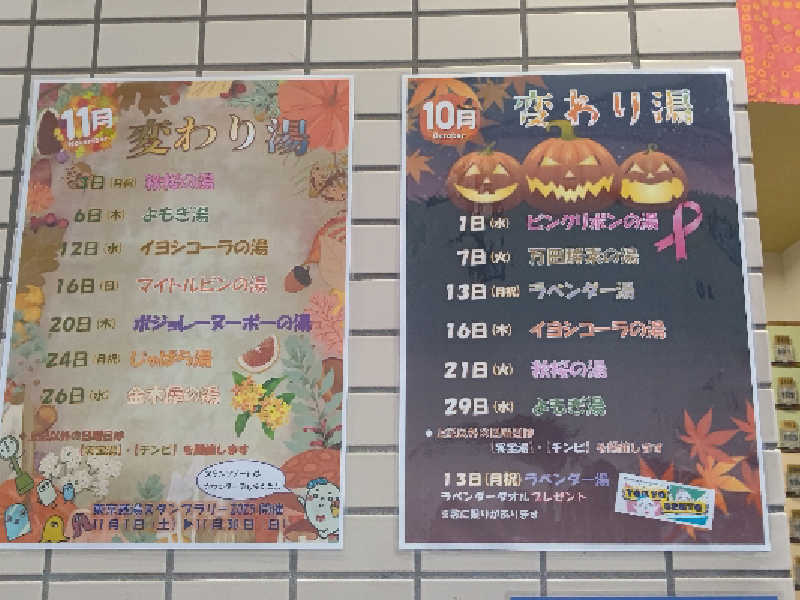 11月
November
変わり湯
(月祝) 秋桜の湯
6日(木) よもぎ湯
12日(水) イヨシコーラの湯
16日(日) マイトルビンの湯
20日(木) ボジョレーヌーボーの湯
24日(月祝) じゃばら湯
26日(水) 金木犀の湯
【チンピ】を
東京銭湯スタンプラリー2025開催
11月1日(土)▶11月30日(日)
10月
October
変わり湯
1日(水) ピンクリボンの湯
7日(火) 万田酵素の湯
13日(月祝) ラベンダー湯
16日(木) イヨシコーラの湯
21日(火) 秋桜の湯
29日(水) よもぎ湯
【チンピ】を
13日(月祝)ラベンダー湯
ラベンダータオルプレゼント
※数に限りがあります
TOKYO
SENTO